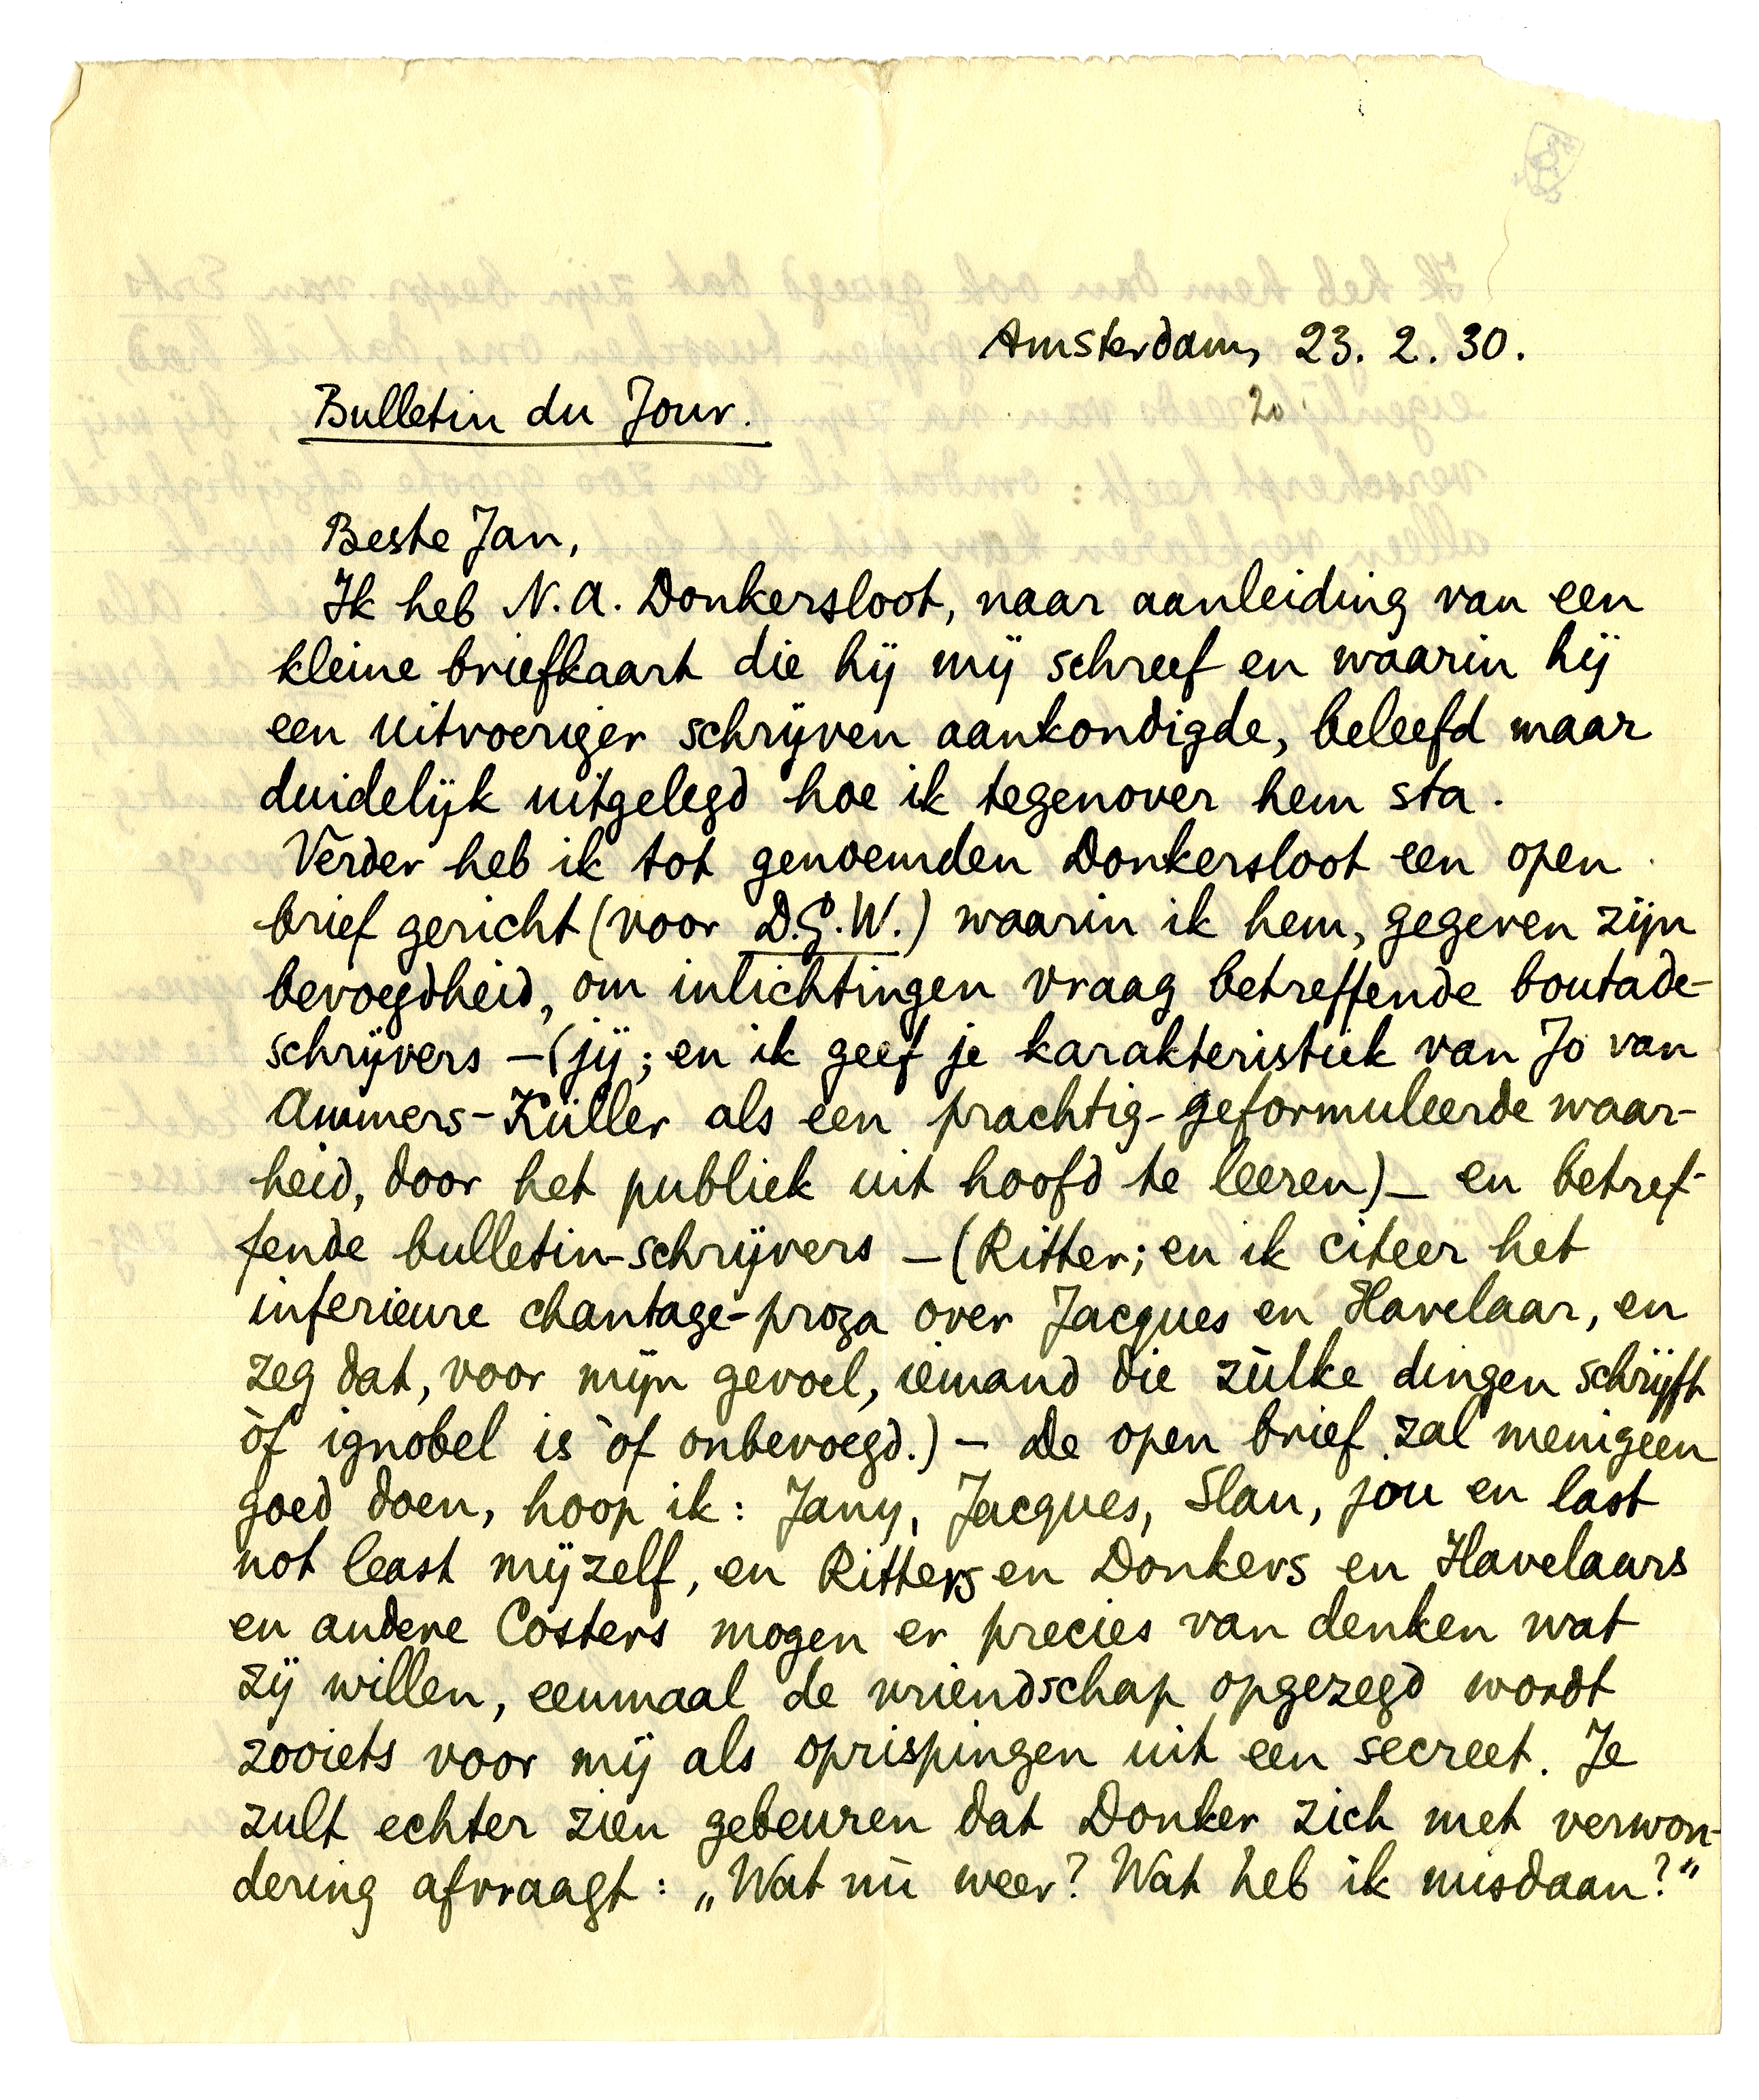 Amsterdam, 23. 2. 30.
20
Bulletin du Jour.
Beste Jan,
Ik heb N.A. Donkersloot, naar aanleiding van een
kleine briefkaart die hij mij schreef en waarin hij
een uitvoeriger schrijven aankondigde, beleefd maar
duidelijk uitgelegd hoe ik tegenover hem sta.
Verder heb ik tot genoemden Donkersloot een open
brief gericht (voor D.G.W.) waarin ik hem, gegeven zijn
bevoegdheid, om inlichtingen vraag betreffende boutade-
schrijvers – (jij; en ik geef je karakteristiek van Jo van
Ammers-Küller als een prachtig-geformuleerde waar-
heid, door het publiek uit hoofd te leeren) – en betref-
fende bulletin-schrijvers – (Ritter; en ik citeer het
inferieure chantage-proza over Jacques en Havelaar, en
zeg dat, voor mijn gevoel, iemand die zùlke dingen schrijft
òf ignobel is òf onbevoegd.) – De open brief zal menigeen
goed doen, hoop ik: Jany, Jacques, Slau, jou en last
not least mijzelf, en Ritters en Donkers en Havelaars
en andere Costers mogen er precies van denken wat
zij willen, eenmaal de vriendschap opgezegd wordt
zooiets voor mij als oprispingen uit een secreet. Je
zult echter zien gebeuren dat Donker zich met verwon-
dering afvraagt: „Wat nù weer? Wat heb ik misdaan?"